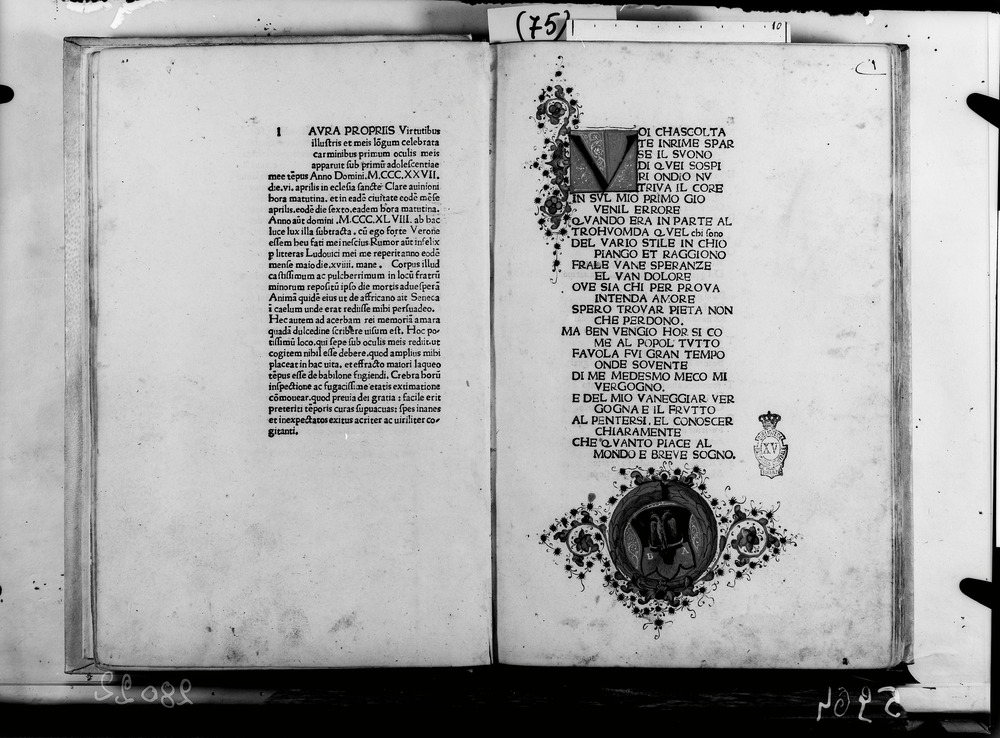 (75)
10
l AVRA PROPRIIS Virtutibus
illuſtris et meis lōgum celebrata
carminibus primum oculis meis
apparuit ſub primū adoleſcentiae
mee tēpus Anno Domini.M.CCC.XXVII.
die.vi. aprilis in eccleſia ſancte Clare auinioni
hora matutina. et in eadē ciuitate eodē mēſe
aprilis.eodē die ſexto.eadem hora matutina.
Anno aūt domini .M.CCC.XLVIII. ab hac
luce lux illa ſubtracta . cū ego forte Verone
eſſem heu fati mei neſcius.Rumor aūt infelix
p litteras Ludouici mei me reperit anno eodē
menſe maio die.xviiii. mane . Corpus illud
caſtiſſimum ac pulcherrimum in locū fratrū
minorum repoſitū ipſo die mortis ad ueſperā
Animā quidē eius ut de affricano ait Seneca
i caelum unde erat rediiſſe mihi perſuadeo.
Hec autem ad acerbam rei memoriā amara
quadā dulcedine ſcribere uiſum eſt. Hoc po-
tiſſimū loco.qui ſepe ſub oculis meis rediit.ut
cogitem nihil eſſe debere.quod amplius mihi
placeat in hac uita. et effracto maiori laqueo
tēpus eſſe de babilone fugiendi. Crebra horū
inſpectione ac fugaciſſime etatis extimatione
cōmonear.quod preuia dei gratia : facile erit
preteriti tēporis curas ſupuacuas: ſpes inanes
et inexpectatos exitus acriter ac uiriliter co-
gitanti.
VOI CHASCOLTA
TE INRIME SPAR
SE IL SVONO
DI QVEI SOSPI
RI ONDIO NV
TRIVA IL CORE
IN SVL MIO PRIMO GIO
VENIL ERRORE
QVANDO ERA IN PARTE AL
TROHVOMDA QVEL chi ſono
DEL VARIO STILE IN CHIO
PIANGO ET RAGGIONO
FRALE VANE SPERANZE
EL VAN DOLORE
OVE SIA CHI PER PROVA
INTENDA AMORE
SPERO TROVAR PIETA NON
CHE PERDONO.
MA BEN VENGIO HOR SI CO
ME AL POPOL TVTTO
FAVOLA FVI GRAN TEMPO
ONDE SOVENTE
DI ME MEDESMO MECO MI
VERGOGNO.
E DEL MIO VANEGGIAR VER
GOGNA E IL FRVTTO
AL PENTERSI. EL CONOSCER
CHIARAMENTE
CHE QVANTO PIACE AL
MONDO E BREVE SOGNO.
XV
B A
28022
5964